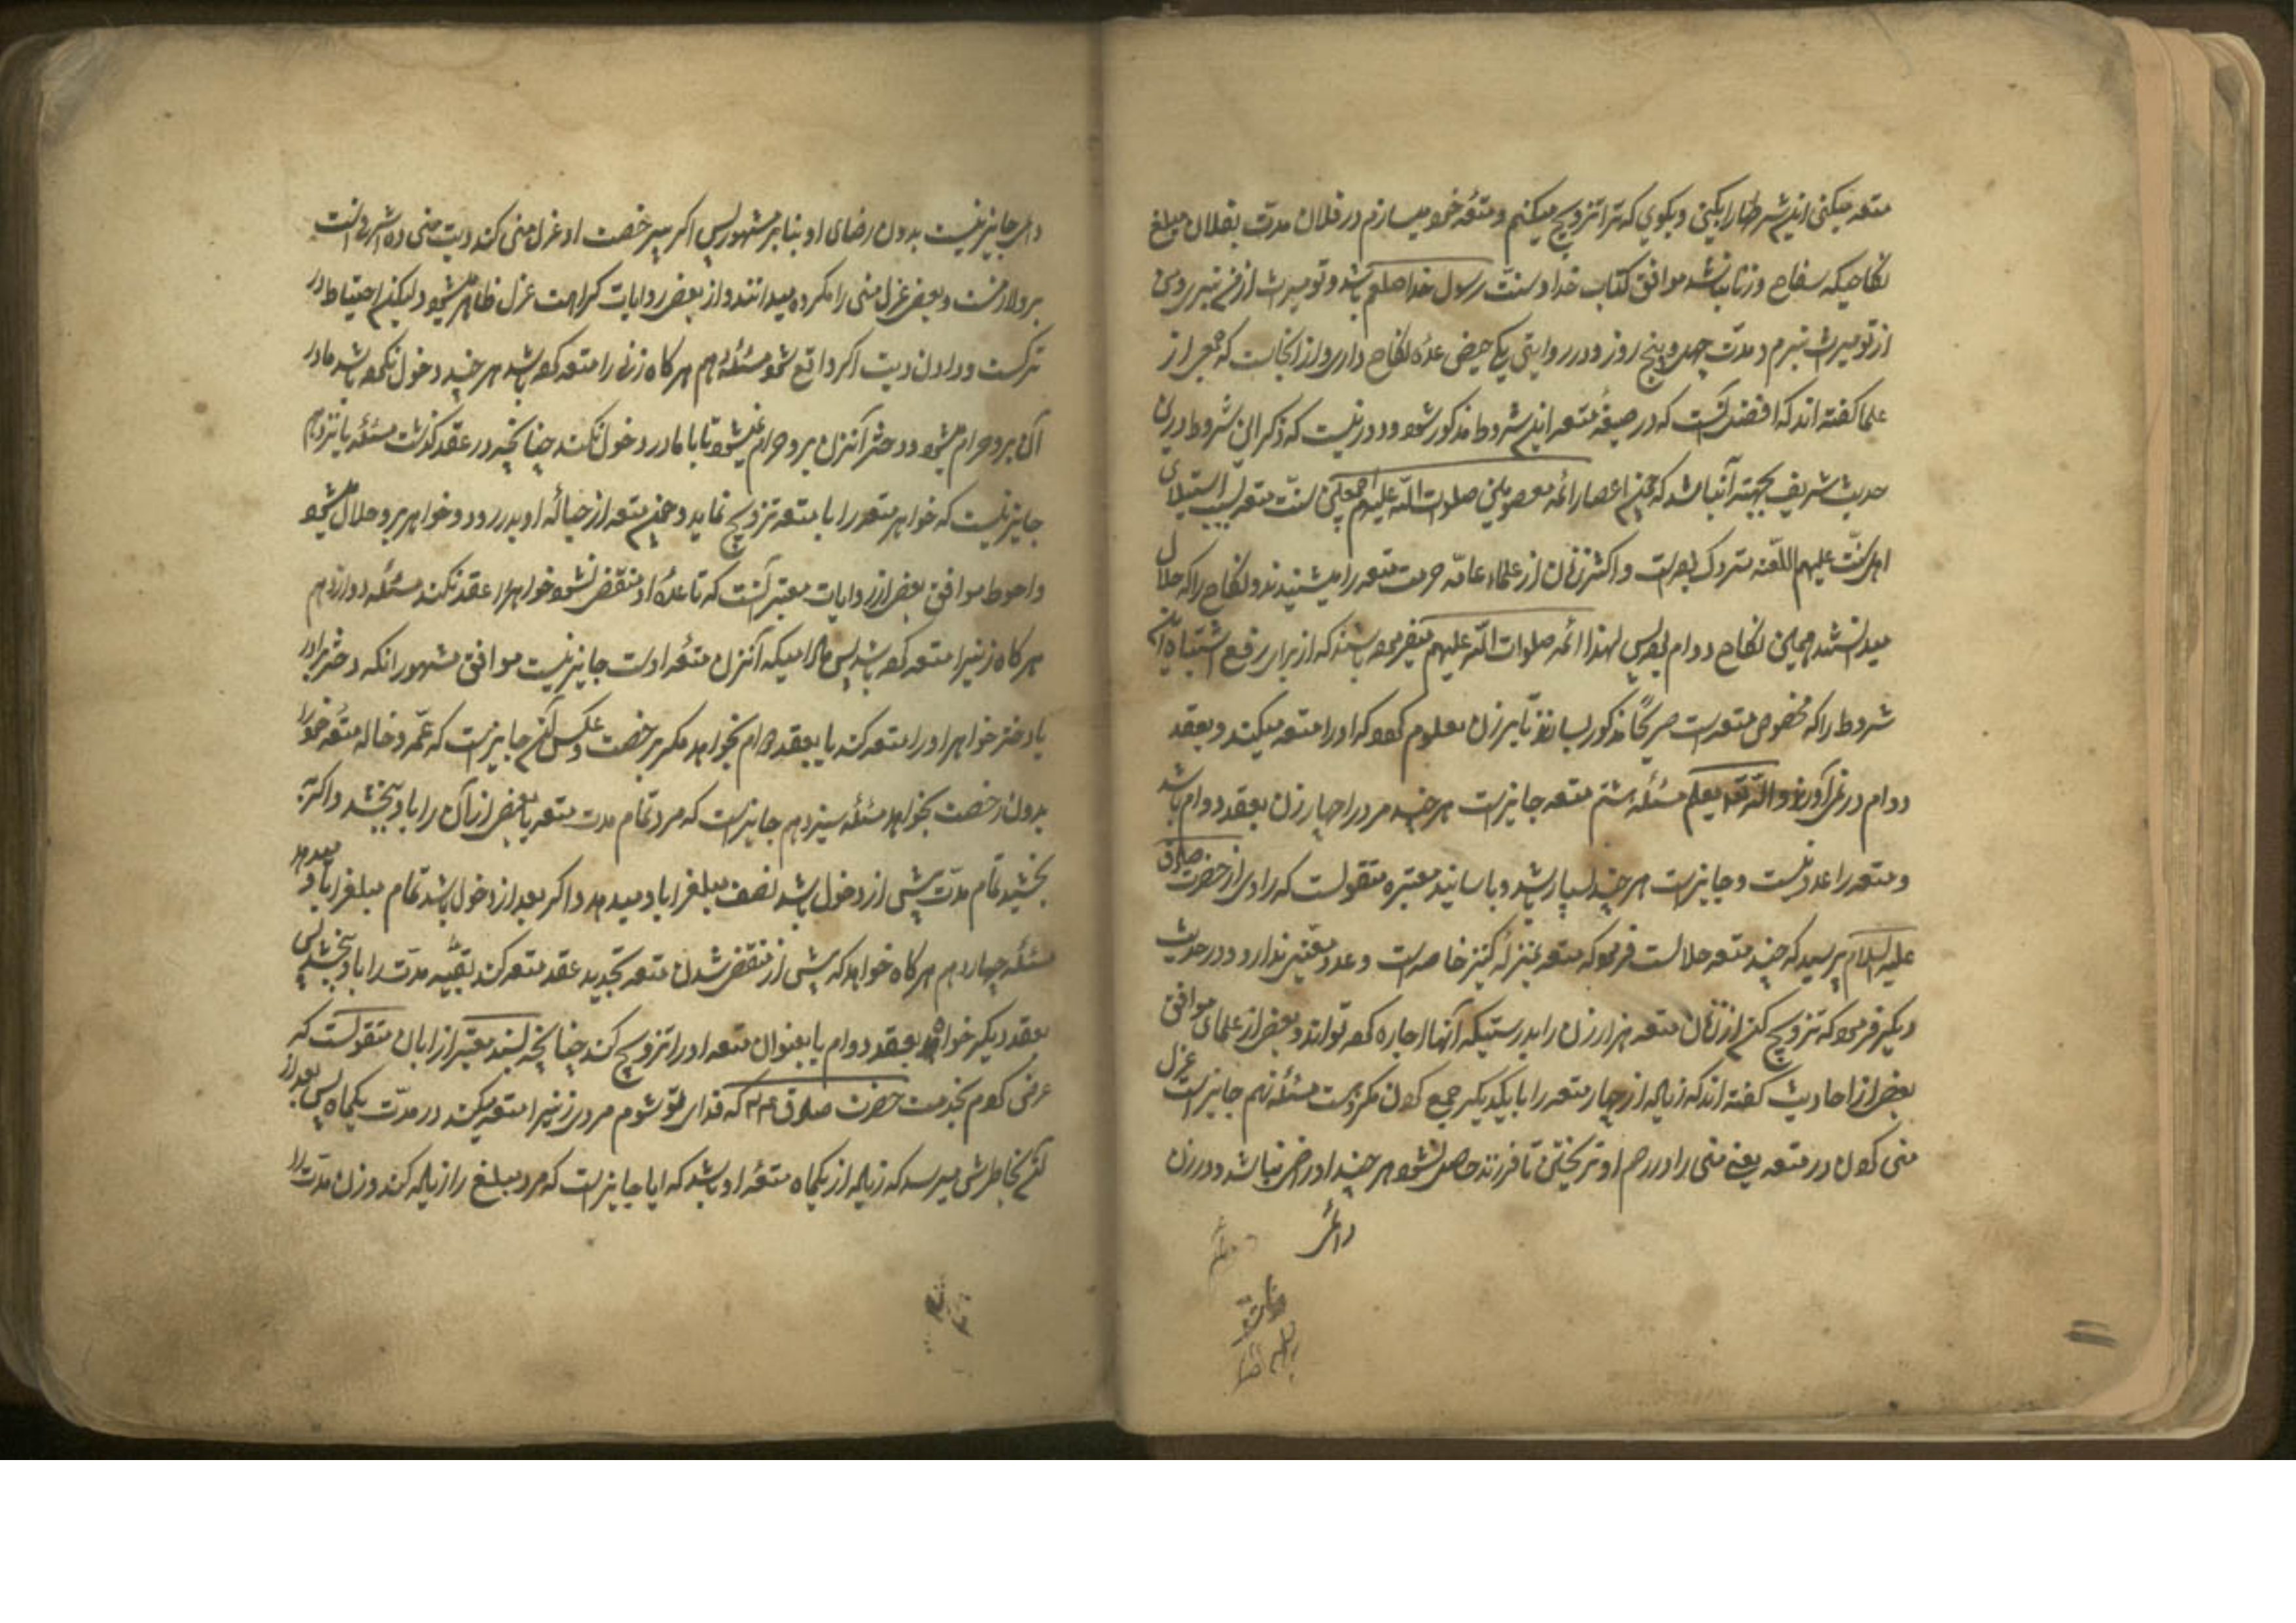 متعه میکنی این شرطها را بکنی و بگوی که ترا تزویج میکنم و متعهٔ خود میسازم در فلان مدت بفلان مبلغ
نکاحیکه سفاح و زنا نباشد موافق کتاب خدا و سنت رسول خدا صلعم باشد و تو میراث از من نبری و من
از تو میراث نبرم و مدت چهل و پنج روز و در روایتی یک حیض عدهٔ نکاح داری و از اینجاست که جمعی از
علما گفته اند که افضل آنست که در صیغهٔ متعه این شروط مذکور شود و دور نیست که ذکر این شروط درین
حدیث شریف بجهته آن باشد که چون اعصار ائمه معصومین صلوات الله علیهم اجمعین سنت متعه بسبب استیلای
اهل سنت علیهم اللعنه متروک بود است و اکثر زنان از علماء عامه حرمت متعه را میشنیدند و نکاح را که حلال
میدانستند همین نکاح دوام بود پس لهذا ائمه صلوات الله علیهم میفرموده باشند که از برای رفع اشتباه این
شروط را که مخصوص متعه است صریحًا مذکور سازند تا بر زن معلوم کرد که او را متعه میکند و بعقد
دوام در نمی آورند والله تعه یعلم مسئله هشتم متعه جایز است هر چند مرد را چهار زن بعقد دوام باشد
و متعه را عدد نیست و جایز است هر چند بسیار باشد و باسانید معتبره منقولست که راوی از حضرت صادق
علیه السلام پرسید که چند متعه حلالست فرمود که متعه بمنزلهٔ کنیز خاصه است و عدد معین ندارد و در حدیث
دیگر فرمود که تزویج کن از زنان متعه هزار زن را بدرستیکه آنها اجاره کرده تواند و بعض از علمای موافق
بعض از احادیث گفته اند که زیاده از چهار متعه را با یکدیگر جمع کردن مکروهست مسئله نهم جایز است عزل
منی کردن در متعه یعنی منی را در رحم او نریختن تا فرزند حاصل نشود هر چند او راضی نباشد و در زن
دائمی
دائمی جایز نیست بدون رضای او بنا بر مشهور پس اگر بیرخصت او عزل منی کند دیت منی ده اشرفی است
برو لازمست و بعض عزل منی را مکروه میدانند و از بعض روایات کراهت عزل ظاهر میشود ولیکن احتیاط در
ترکست و در دادن دیت اگر واقع شود مسئله دهم هر گاه زنی را متعه کرده باشد هر چند دخول نکرده باشد مادر
آن برو حرام میشود و دختر آنزن برو حرام نمیشود تا با مادر دخول نکند چنانچه در عقد گذشت مسئله یازدهم
جایز نیست که خواهر متعه را با متعه تزویج نماید و چون متعه از حبالهٔ او بدر رود و خواهر برو حلال میشود
و احوط موافق بعض از روایات معتبر آنست که تا عدهٔ او منقضی نشود خواهر را عقد نکند مسئله دوازدهم
هر گاه زنیرا متعه کرده باشد پس مادامیکه آنزن متعهٔ اوست جایز نیست موافق مشهور انکه دختر برادر
یا دختر خواهر او را متعه کند یا بعقد دوام بخواهد مگر برخصت و عکس آن جایز است که عمه و خاله متعهٔ خود را
بدون رخصت بخواهد مسئله سیزدهم جایز است که مرد تمام مدت متعه یا بعض از آن را باو بخشد و اگر
بخشید تمام مدت پیش از دخول باشد نصف مبلغ را باو میدهد و اگر بعد از دخول باشد تمام مبلغ را باو میدهد
مسئله چهاردهم هر گاه خواهد که پیش از منقضی شدن متعه تجدید عقد متعه کند بقیه مدت را باو بخشد پس
بعقد دیگر خواه بعقد دوام یا بعنوان متعه او را تزویج کند چنانچه بسند معتبر از ابان منقولست که
عرض کردم بخدمت حضرت صادق ع که فدای تو شوم مردی زنیرا متعه میکند در مدت یکماه پس بعد از
آن بخاطرش میرسد که زیاده از یکماه متعهٔ او باشد که ایا جایز است که مرد مبلغ را زیاده کند و زن مدت را